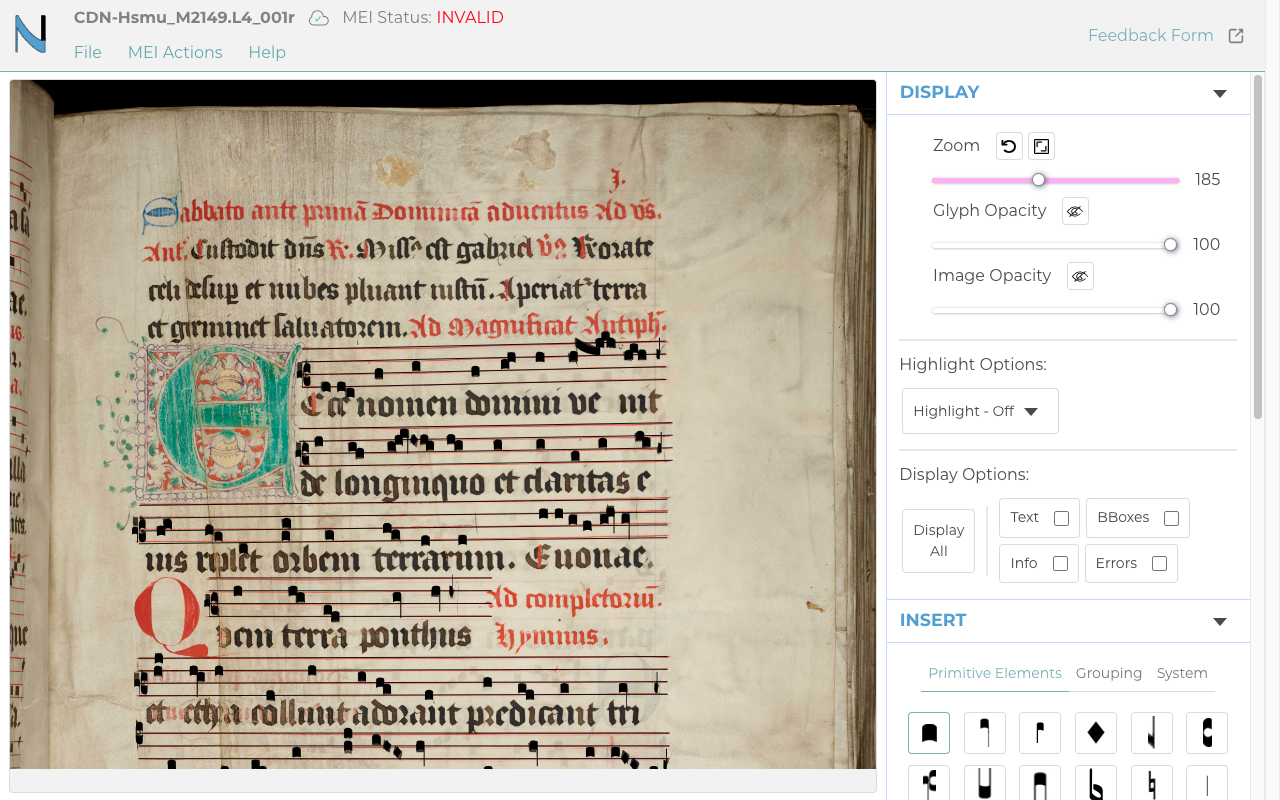 CDN-Hsmu_M2149.L4_001r MEI Status: INVALID
File MEI Actions Help
Feedback Form
j.
Sabbato ante primā Dominicā aduentus Ad vs̄.
Ant. Custodit dn̄s R. Missꝰ est gabriel Rorate
celi desuꝑ et nubes pluant iustū. Aperiat terra
et germinet saluatorem. Ad Magnificat Antiph.
Ecce nomen domini ve nit
de longinquo et claritas e
ius replet orbem terrarum. Euouae.
Ad completoriū.
Quem terra ponthus Hymnus.
et ethra collunt adorant predicant tri
DISPLAY
Zoom 185
Glyph Opacity 100
Image Opacity 100
Highlight Options:
Highlight - Off
Display Options:
Display All
Text BBoxes
Info Errors
INSERT
Primitive Elements Grouping System